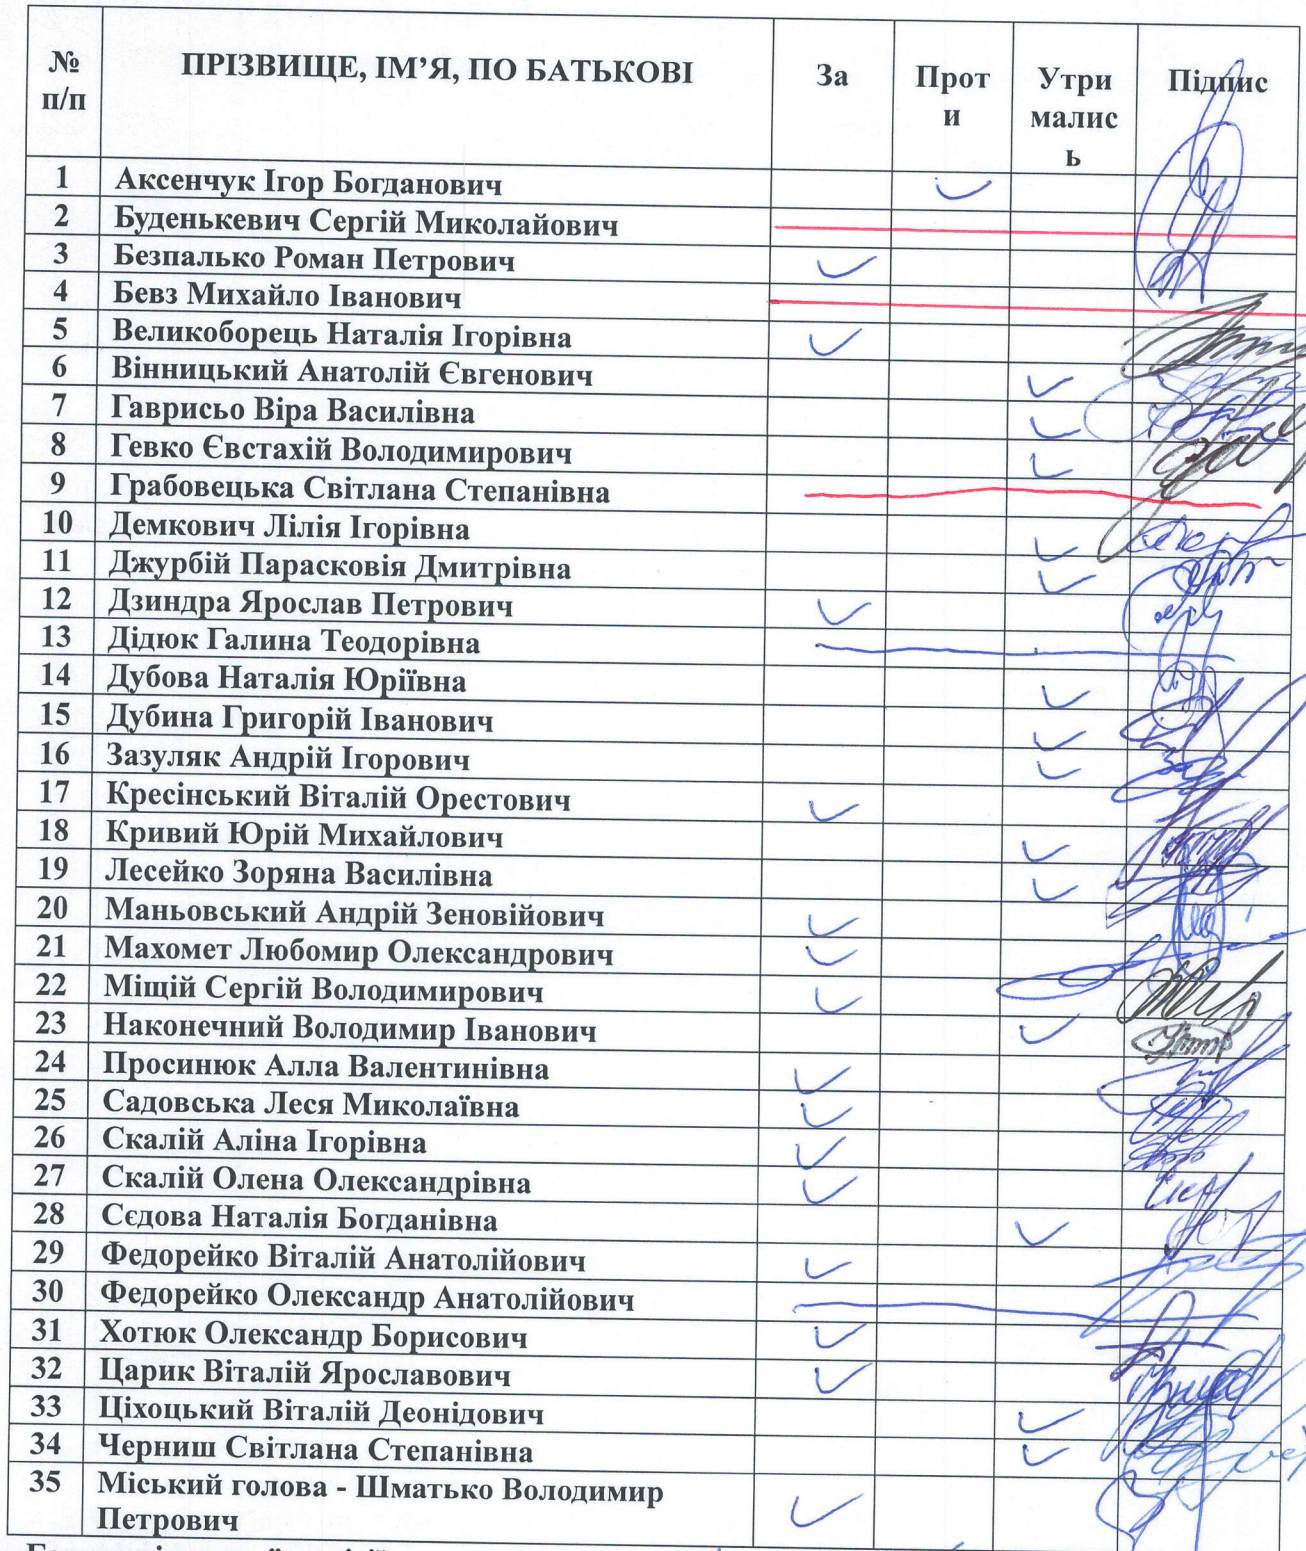 № п/п ПРІЗВИЩЕ, ІМ’Я, ПО БАТЬКОВІ За Прот и Утри малис ь Підпис
1 Аксенчук Ігор Богданович
2 Буденькевич Сергій Миколайович
3 Безпалько Роман Петрович
4 Бевз Михайло Іванович
5 Великоборець Наталія Ігорівна
6 Вінницький Анатолій Євгенович
7 Гаврисьо Віра Василівна
8 Гевко Євстахій Володимирович
9 Грабовецька Світлана Степанівна
10 Демкович Лілія Ігорівна
11 Джурбій Парасковія Дмитрівна
12 Дзиндра Ярослав Петрович
13 Дідюк Галина Теодорівна
14 Дубова Наталія Юріївна
15 Дубина Григорій Іванович
16 Зазуляк Андрій Ігорович
17 Кресінський Віталій Орестович
18 Кривий Юрій Михайлович
19 Лесейко Зоряна Василівна
20 Маньовський Андрій Зеновійович
21 Махомет Любомир Олександрович
22 Міщій Сергій Володимирович
23 Наконечний Володимир Іванович
24 Просинюк Алла Валентинівна
25 Садовська Леся Миколаївна
26 Скалій Аліна Ігорівна
27 Скалій Олена Олександрівна
28 Сєдова Наталія Богданівна
29 Федорейко Віталій Анатолійович
30 Федорейко Олександр Анатолійович
31 Хотюк Олександр Борисович
32 Царик Віталій Ярославович
33 Ціхоцький Віталій Деонідович
34 Черниш Світлана Степанівна
35 Міський голова - Шматько Володимир
Петрович